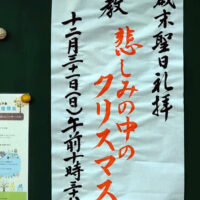 歳末聖日礼拝
教
悲しみの中の
クリスマス
十二月三十一日(日)午前十時三